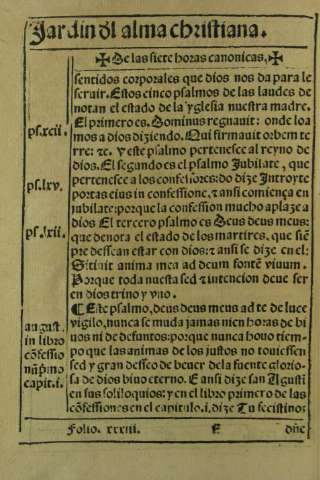 Jardin ďl alma christiana.
✠ De las siete horas canonicas, ✠
sentidos corporales que dios nos da para le
seruir. Estos cinco psalmos de las laudes de
notan el estado de la yglesia nuestra madre.
ps.xcii.
El primero es. Dominus regnauit: onde loa
mos a dios diziendo. Qui firmauit orbem te
rre: ⁊c. y este psalmo pertenesce al reyno de
dios. El segundo es el psalmo Jubilate, que
pertenesce a los confessores: do dize Introyte
ps.lxv.
portas eius in confessione, ⁊ ansi comiença en
jubilate: porque la confession mucho aplaze a
dios El tercero psalmo es Deus deus meus:
ps.lxii.
que denota el estado de los martires, que siē
pre dessean estar con dios: ⁊ ansi se dize en el:
Sitiuit anima mea ad deum fontē viuum.
Porque toda nuestra sed ⁊ intencion deue ser
en dios trino y vno.
¶ Este psalmo, deus deus meus ad te de luce
vigilo, nunca se muda jamas nien horas de bi
uos ni de defuntos: porque nunca houo tiem-
po que las animas de los justos no touiessen
sed y gran desseo de beuer de la fuente glorio-
sa de dios biuo eterno. E ansi dize san Agusti
en sus soliloquios: y en el libro primero de las
cōfessiones en el capitulo.i. dize Tu fecistinos
august.
in libro
cōfessio
capit.i.
Folio. xxxiii. E